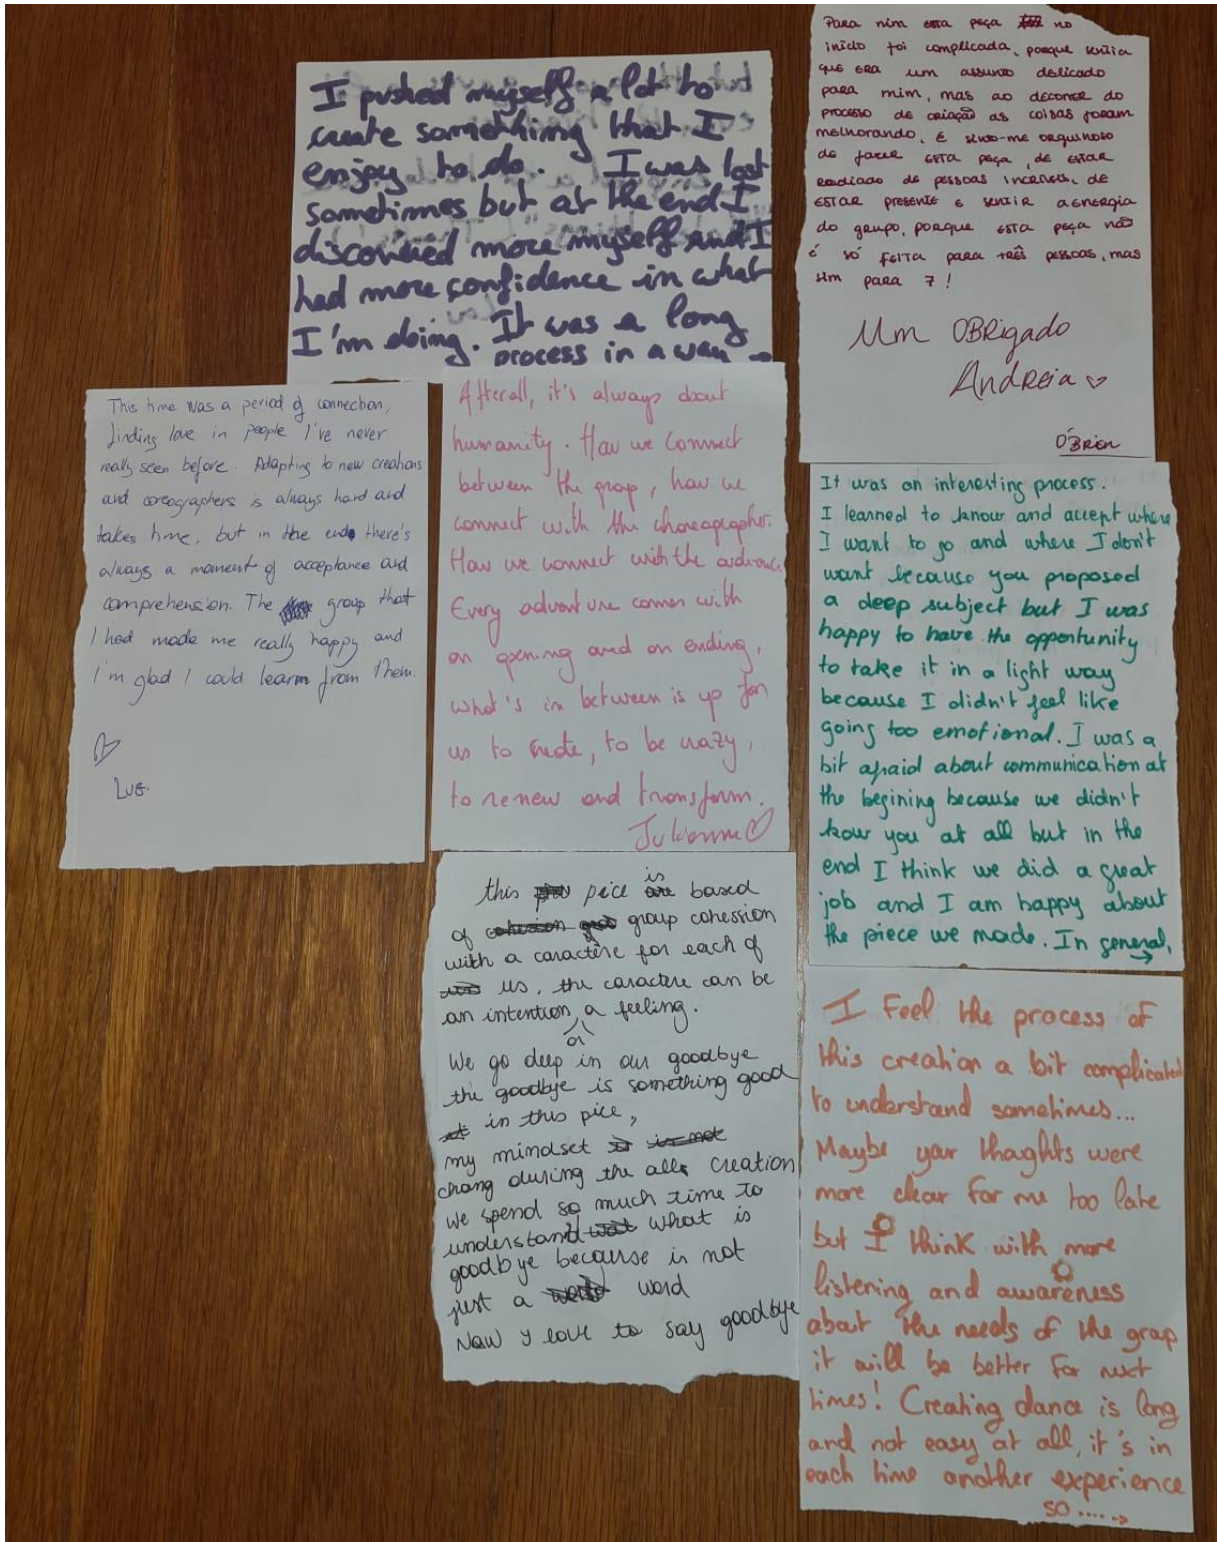 I pushed myself a lot to
create something that I
enjoy to do. I was lost
sometimes but at the end I
discovered more myself and I
had more confidence in what
I'm doing. It was a long
process in a way
Para mim esta peça no
início foi complicada, porque sentia
que era um assunto delicado
para mim, mas ao decorrer do
processo de criação as coisas foram
melhorando, e sinto-me orgulhoso
de fazer esta peça, de estar
rodiado de pessoas incríveis, de
estar presente e sentir a energia
do grupo, porque esta peça não
é só feita para três pessoas, mas
sim para 7!
Um OBRigado
Andreia ♡
O'Brien
This time was a period of connection,
finding love in people I've never
really seen before. Adapting to new creations
and coreographers is always hard and
takes time, but in the end there's
always a moment of acceptance and
comprehension. The group that
I had made me really happy and
I'm glad I could learn from them.
♡
Afterall, it's always about
humanity. How we connect
between the group, how we
connect with the choreographer.
How we connect with the audience.
Every adventure comes with
an opening and an ending,
what's in between is up for
us to create, to be crazy,
to renew and transform.
Julianne ♡
It was an interesting process.
I learned to know and accept where
I want to go and where I don't
want because you proposed
a deep subject but I was
happy to have the opportunity
to take it in a light way
because I didn't feel like
going too emotional. I was a
bit afraid about communication at
the begining because we didn't
know you at all but in the
end I think we did a great
job and I am happy about
the piece we made. In general, →
this pice is based
of group cohession
with a caractère for each of
us, the caractere can be
an intention or a feeling.
We go deep in our goodbye
the goodbye is something good
in this pice,
my mindset
chang during the all creation
we spend so much time to
understand what is
goodbye because is not
just a word
Now y love to say goodbye
I Feel the process of
this creation a bit complicated
to understand sometimes...
Maybe your thaghts were
more clear for me too late
but I think with more
listening and awareness
about the needs of the grap
it will be better for next
times! Creating dance is long
and not easy at all, it's in
each time another experience
so....→